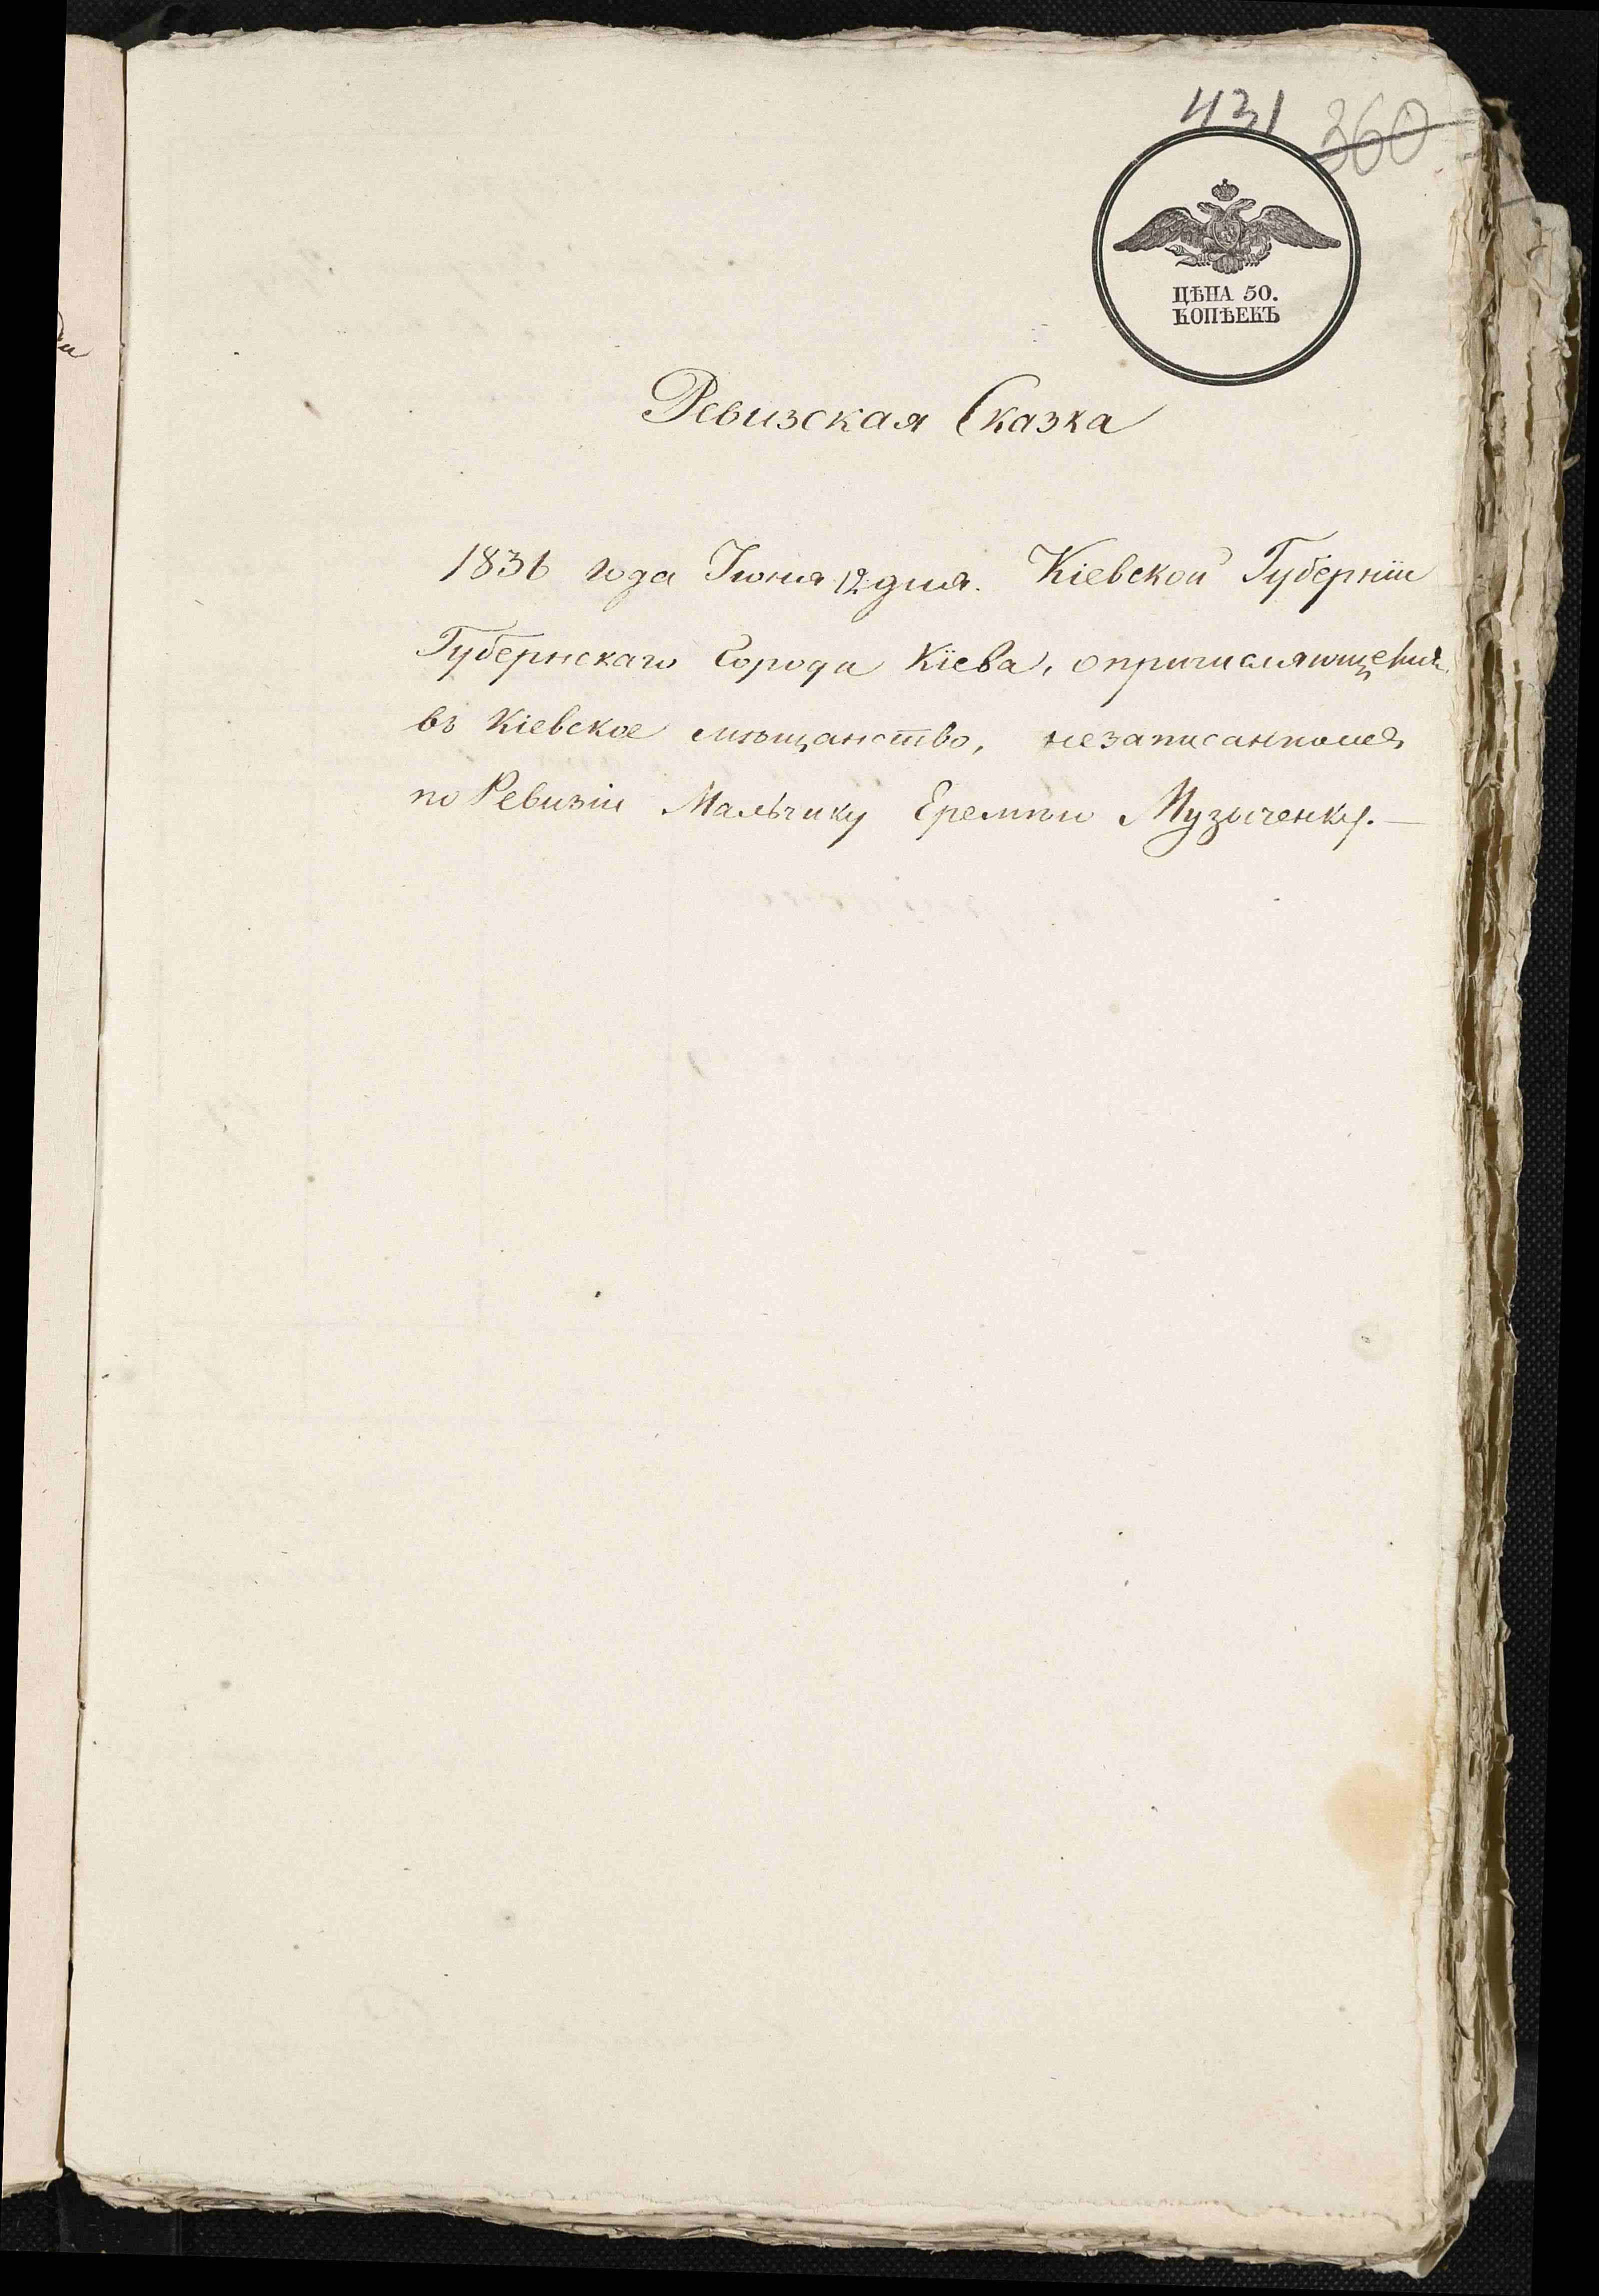 431 360
ЦѢНА 50.
КОПѢЕКЪ
Ревизская Сказка
1836 года Іюня 12 дня. Кіевской Губерніи
Губернскаго Города Кіева, о причисляющемся
въ Кіевское мѣщанство, незаписанномъ
по Ревизіи Мальчику Еремѣю Музыченку.—